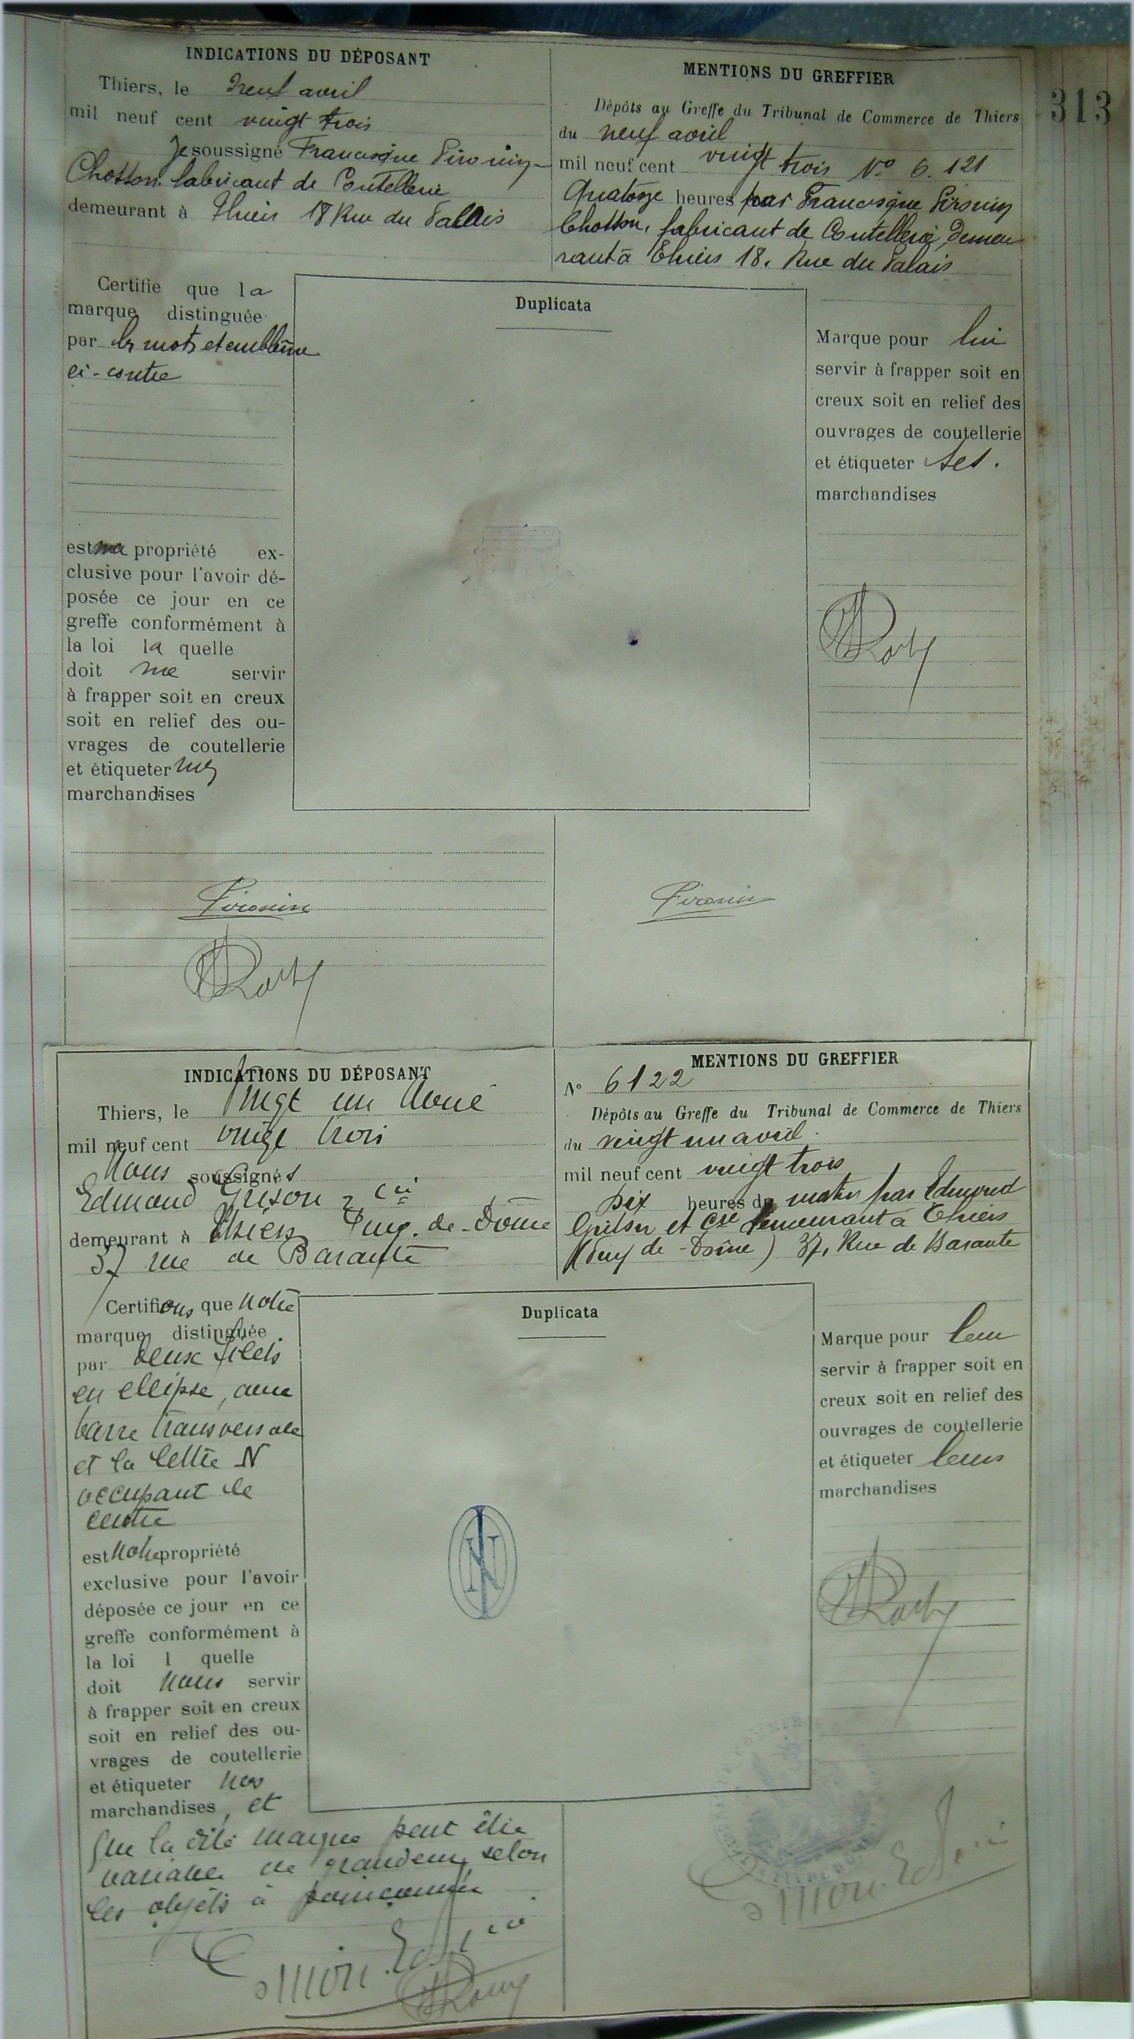 313
INDICATIONS DU DÉPOSANT
Thiers, le neuf avril
mil neuf cent vingt trois
Je soussigné Francisque Pironin
Chosson fabricant de Coutellerie
demeurant à Thiers 18 Rue du Palais
MENTIONS DU GREFFIER
Dépôts au Greffe du Tribunal de Commerce de Thiers
du neuf avril
mil neuf cent vingt trois No 6.121
Quatorze heures par Francisque Pironin
Chosson, fabricant de Coutellerie, demeu
rant à Thiers 18. Rue du Palais
Certifie que la
marque distinguée
par les mots et emblème
ci-contre
est ma propriété ex-
clusive pour l'avoir dé-
posée ce jour en ce
greffe conformément à
la loi la quelle
doit me servir
à frapper soit en creux
soit en relief des ou-
vrages de coutellerie
et étiqueter mes
marchandises
Duplicata
Marque pour lui
servir à frapper soit en
creux soit en relief des
ouvrages de coutellerie
et étiqueter ses.
marchandises
Pironin
Pironin
INDICATIONS DU DÉPOSANT
Thiers, le Vingt un Avril
mil neuf cent vingt trois
Nous soussignés
Edmond Grison & Cie
demeurant à Thiers Puy-de-Dôme
37 rue de Barante
MENTIONS DU GREFFIER
No 6122
Dépôts au Greffe du Tribunal de Commerce de Thiers
du vingt un avril.
mil neuf cent vingt trois
Dix heures du matin par Edmond
Grison et Cie demeurant à Thiers
(Puy-de-Dôme) 37, Rue de Barante
Certifions que notre
marque distinguée
par deux filets
en ellipse, une
barre transversale
et la lettre N
occupant le
centre
est notre propriété
exclusive pour l'avoir
déposée ce jour en ce
greffe conformément à
la loi l quelle
doit nous servir
à frapper soit en creux
soit en relief des ou-
vrages de coutellerie
et étiqueter nos
marchandises, et
que la dite marque peut être
variable de grandeur, selon
les objets à poinçonner
Duplicata
N
Marque pour leur
servir à frapper soit en
creux soit en relief des
ouvrages de coutellerie
et étiqueter leurs
marchandises